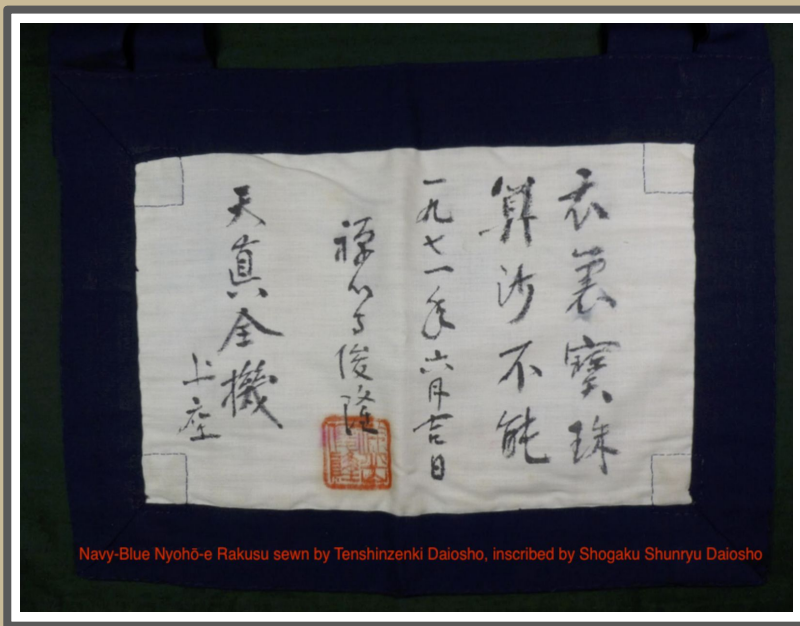 衣裏寶珠
算沙不能
一九七一年六月吉日
禅心寺俊隆
天真全機
上座
Navy-Blue Nyohō-e Rakusu sewn by Tenshinzenki Daiosho, inscribed by Shogaku Shunryu Daiosho